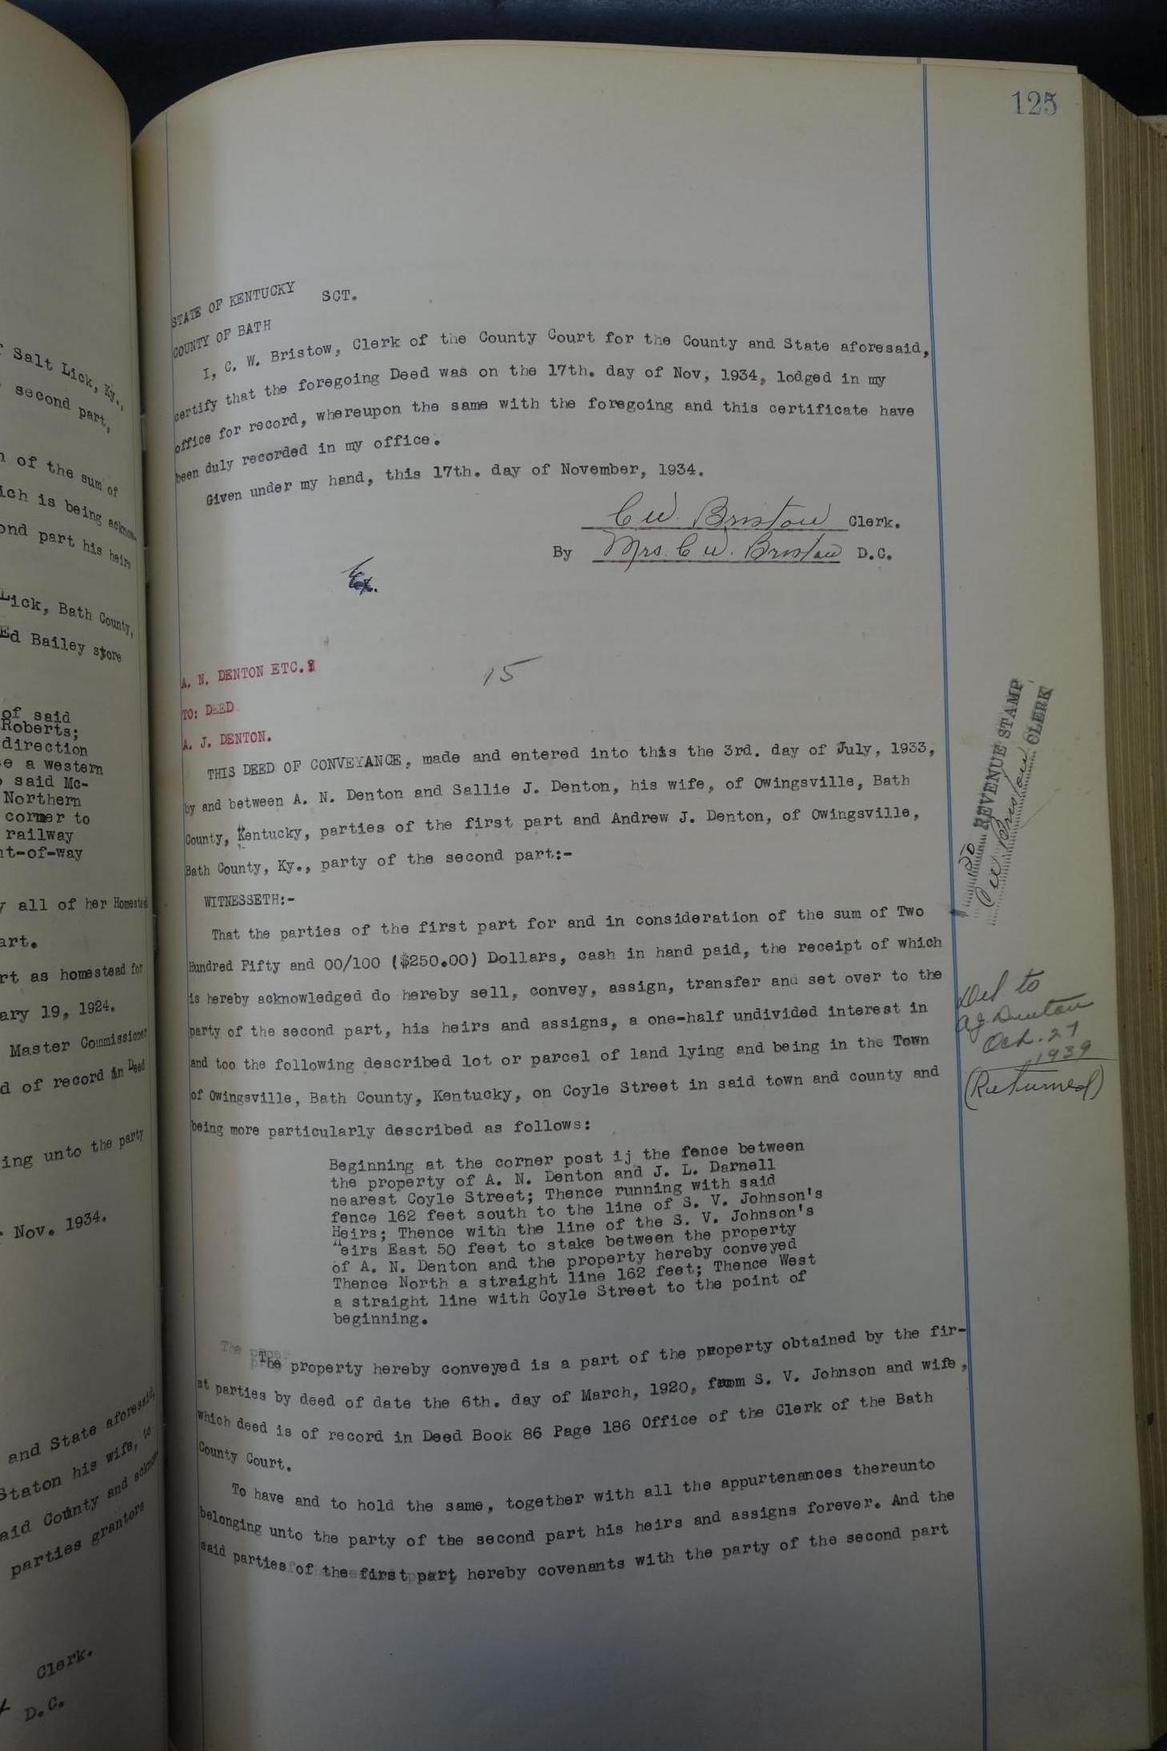 Salt Lick, Ky.,
second part,
of the sum of
ich is being acknow-
ond part his heirs
Lick, Bath County,
Ed Bailey store
of said
Roberts;
direction
e a western
said Mc-
Northern
corner to
railway
ht-of-way
all of her Homestead
art.
rt as homestead for
ary 19, 1924.
Master Commissioner
d of record in Deed
ing unto the party
Nov. 1934.
and State aforesaid,
Staton his wife, to
aid County and
parties grantors
Clerk.
D.C.
125
STATE OF KENTUCKY
SCT.
COUNTY OF BATH
I, C. W. Bristow, Clerk of the County Court for the County and State aforesaid,
certify that the foregoing Deed was on the 17th. day of Nov, 1934, lodged in my
office for record, whereupon the same with the foregoing and this certificate have
been duly recorded in my office.
Given under my hand, this 17th. day of November, 1934.
C W. Bristow Clerk.
By Mrs. C W. Bristow D.C.
Ex.
A. N. DENTON ETC.
15
TO: DEED
A. J. DENTON.
THIS DEED OF CONVEYANCE, made and entered into this the 3rd. day of July, 1933,
by and between A. N. Denton and Sallie J. Denton, his wife, of Owingsville, Bath
County, Kentucky, parties of the first part and Andrew J. Denton, of Owingsville,
Bath County, Ky., party of the second part:-
WITNESSETH:-
That the parties of the first part for and in consideration of the sum of Two
Hundred Fifty and 00/100 ($250.00) Dollars, cash in hand paid, the receipt of which
is hereby acknowledged do hereby sell, convey, assign, transfer and set over to the
party of the second part, his heirs and assigns, a one-half undivided interest in
and too the following described lot or parcel of land lying and being in the Town
of Owingsville, Bath County, Kentucky, on Coyle Street in said town and county and
being more particularly described as follows:
Beginning at the corner post ij the fence between
the property of A. N. Denton and J. L. Darnell
nearest Coyle Street; Thence running with said
fence 162 feet south to the line of S. V. Johnson's
Heirs; Thence with the line of the S. V. Johnson's
Heirs East 50 feet to stake between the property
of A. N. Denton and the property hereby conveyed
Thence North a straight line 162 feet; Thence West
a straight line with Coyle Street to the point of
beginning.
The property hereby conveyed is a part of the property obtained by the fir-
st parties by deed of date the 6th. day of March, 1920, from S. V. Johnson and wife,
which deed is of record in Deed Book 86 Page 186 Office of the Clerk of the Bath
County Court.
To have and to hold the same, together with all the appurtenances thereunto
belonging unto the party of the second part his heirs and assigns forever. And the
said parties of the first part hereby covenants with the party of the second part
50 REVENUE STAMP
C W Bristow CLERK
Del to
A J Denton
Oct. 27
1939
(Returned)